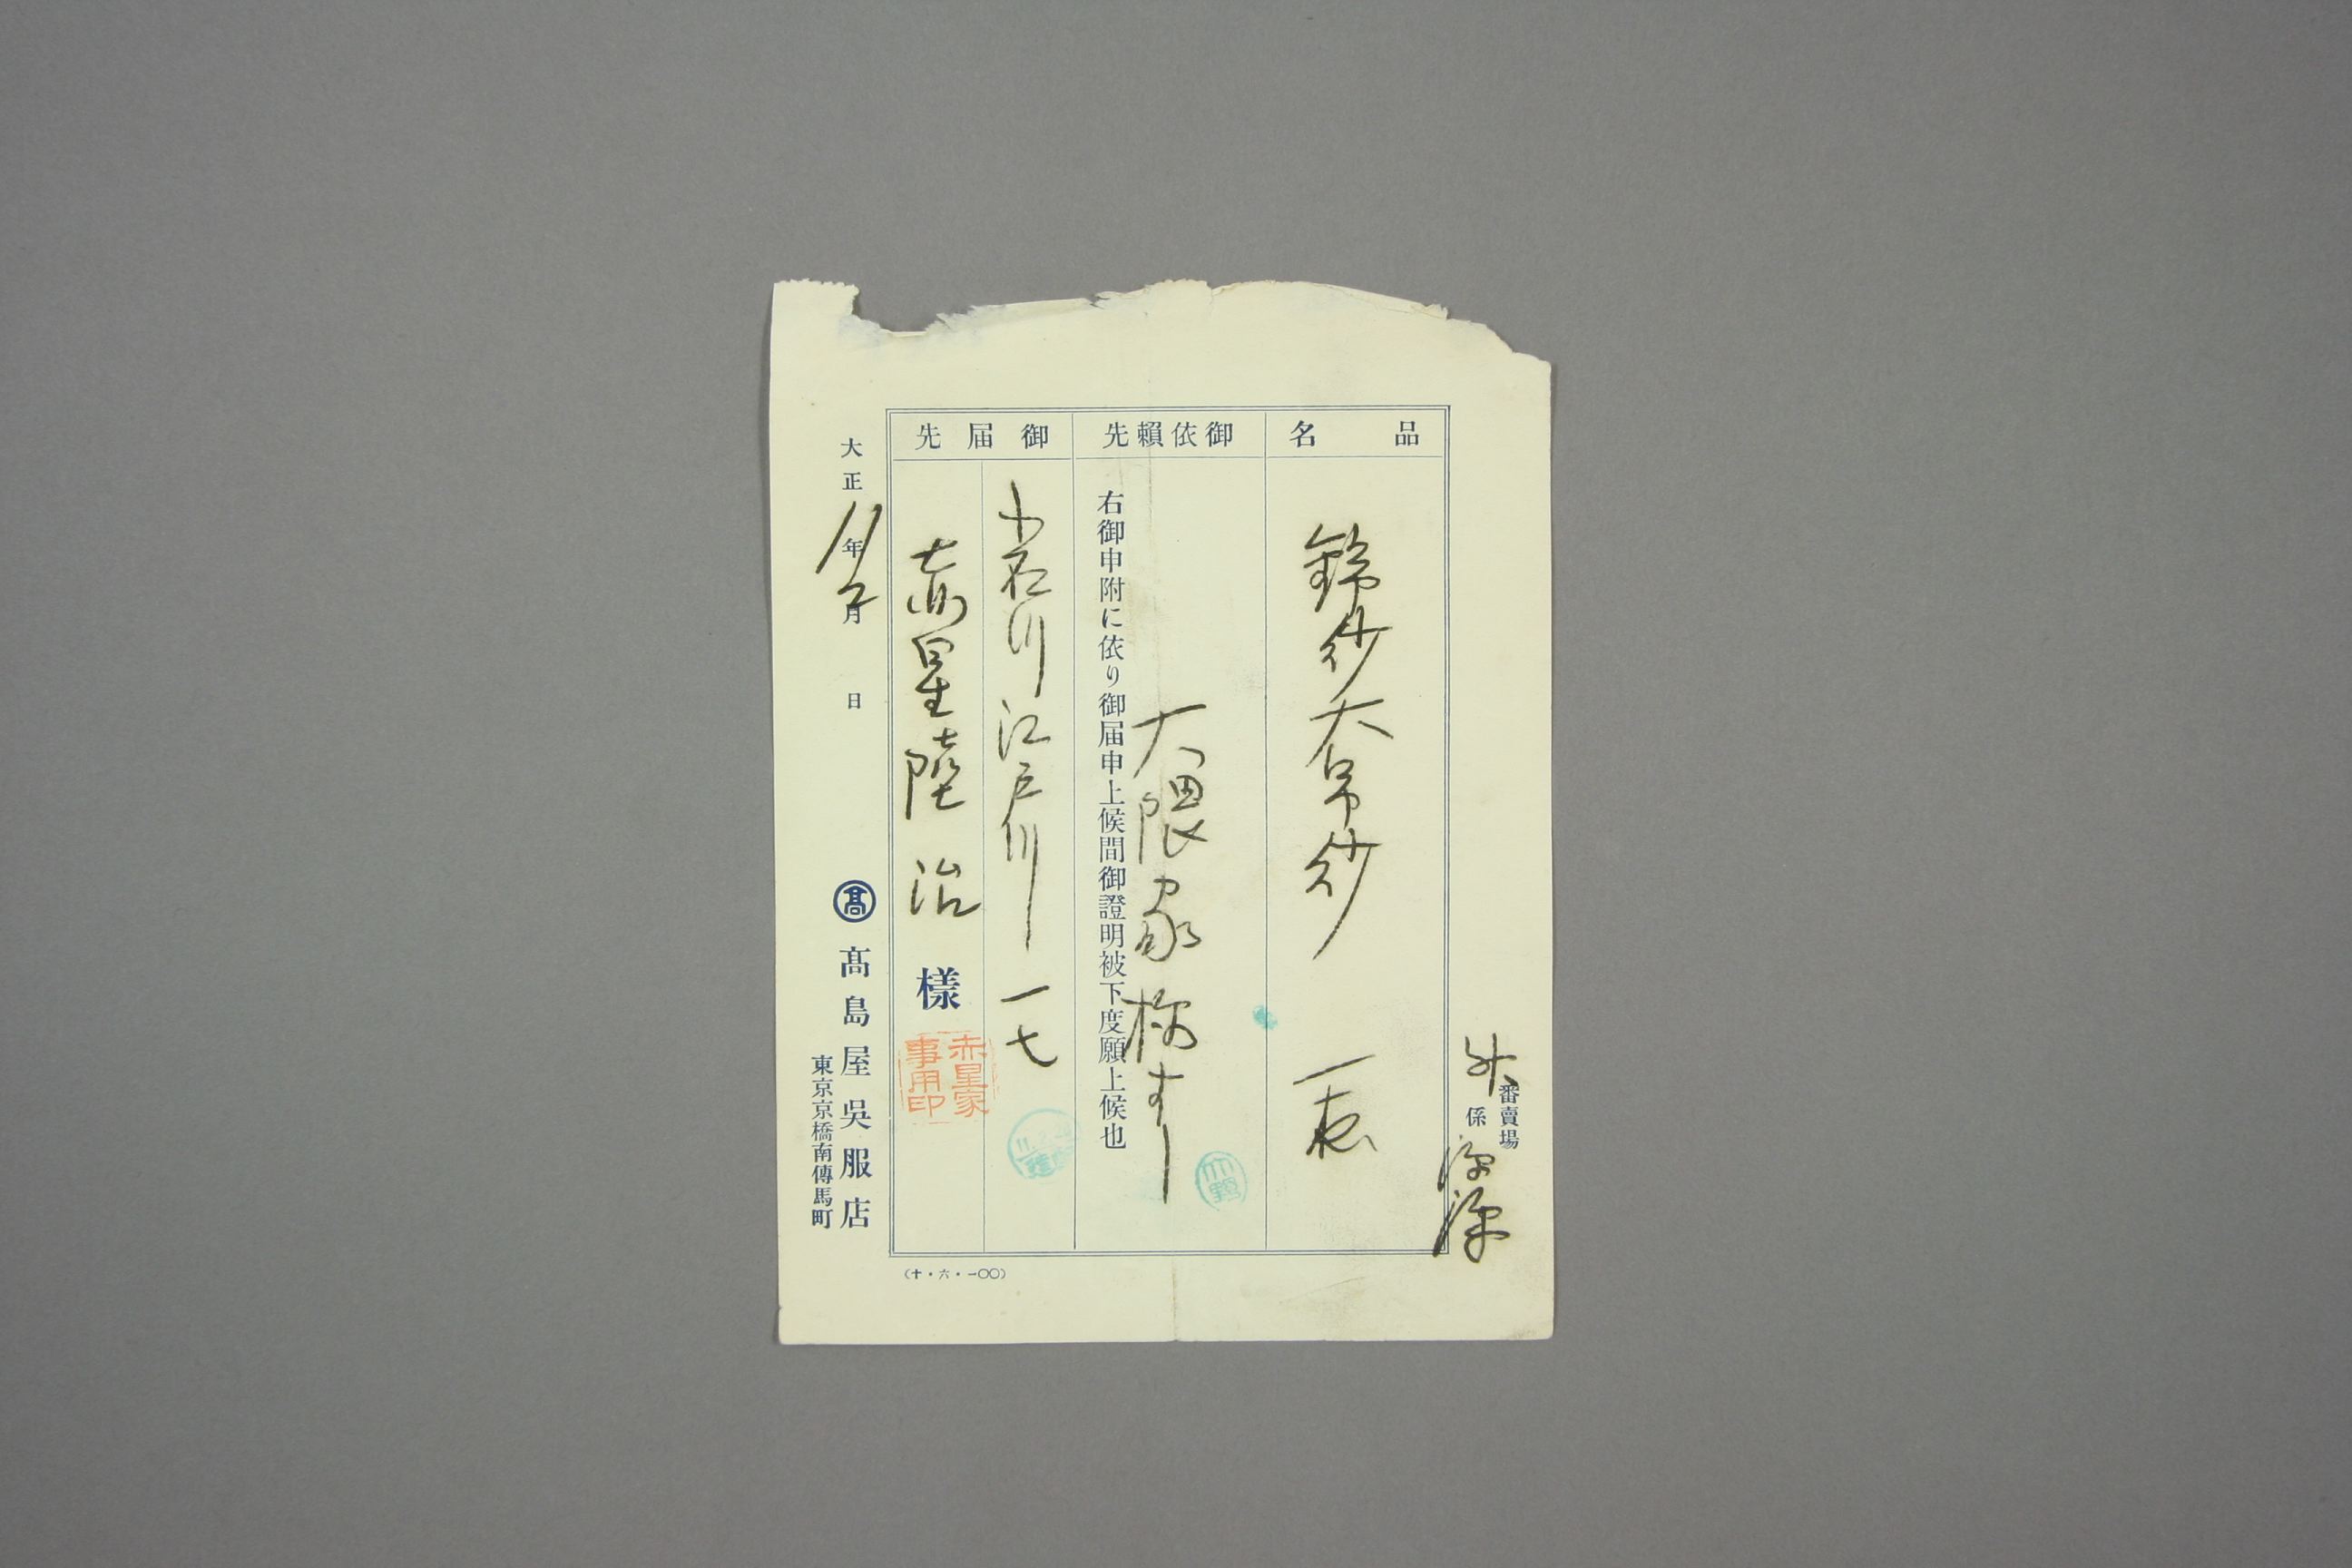 外番賣場
係
品名
錦紗大帛紗
御依賴先
大隈家様
右御申附に依り御届申上候間御證明被下度願上候也
御届先
小石川江戸川一七
赤星陸治樣
赤星家
事用印
大正11年2月 日
髙 髙島屋吳服店
東京京橋南傳馬町
(十・六・一〇〇)